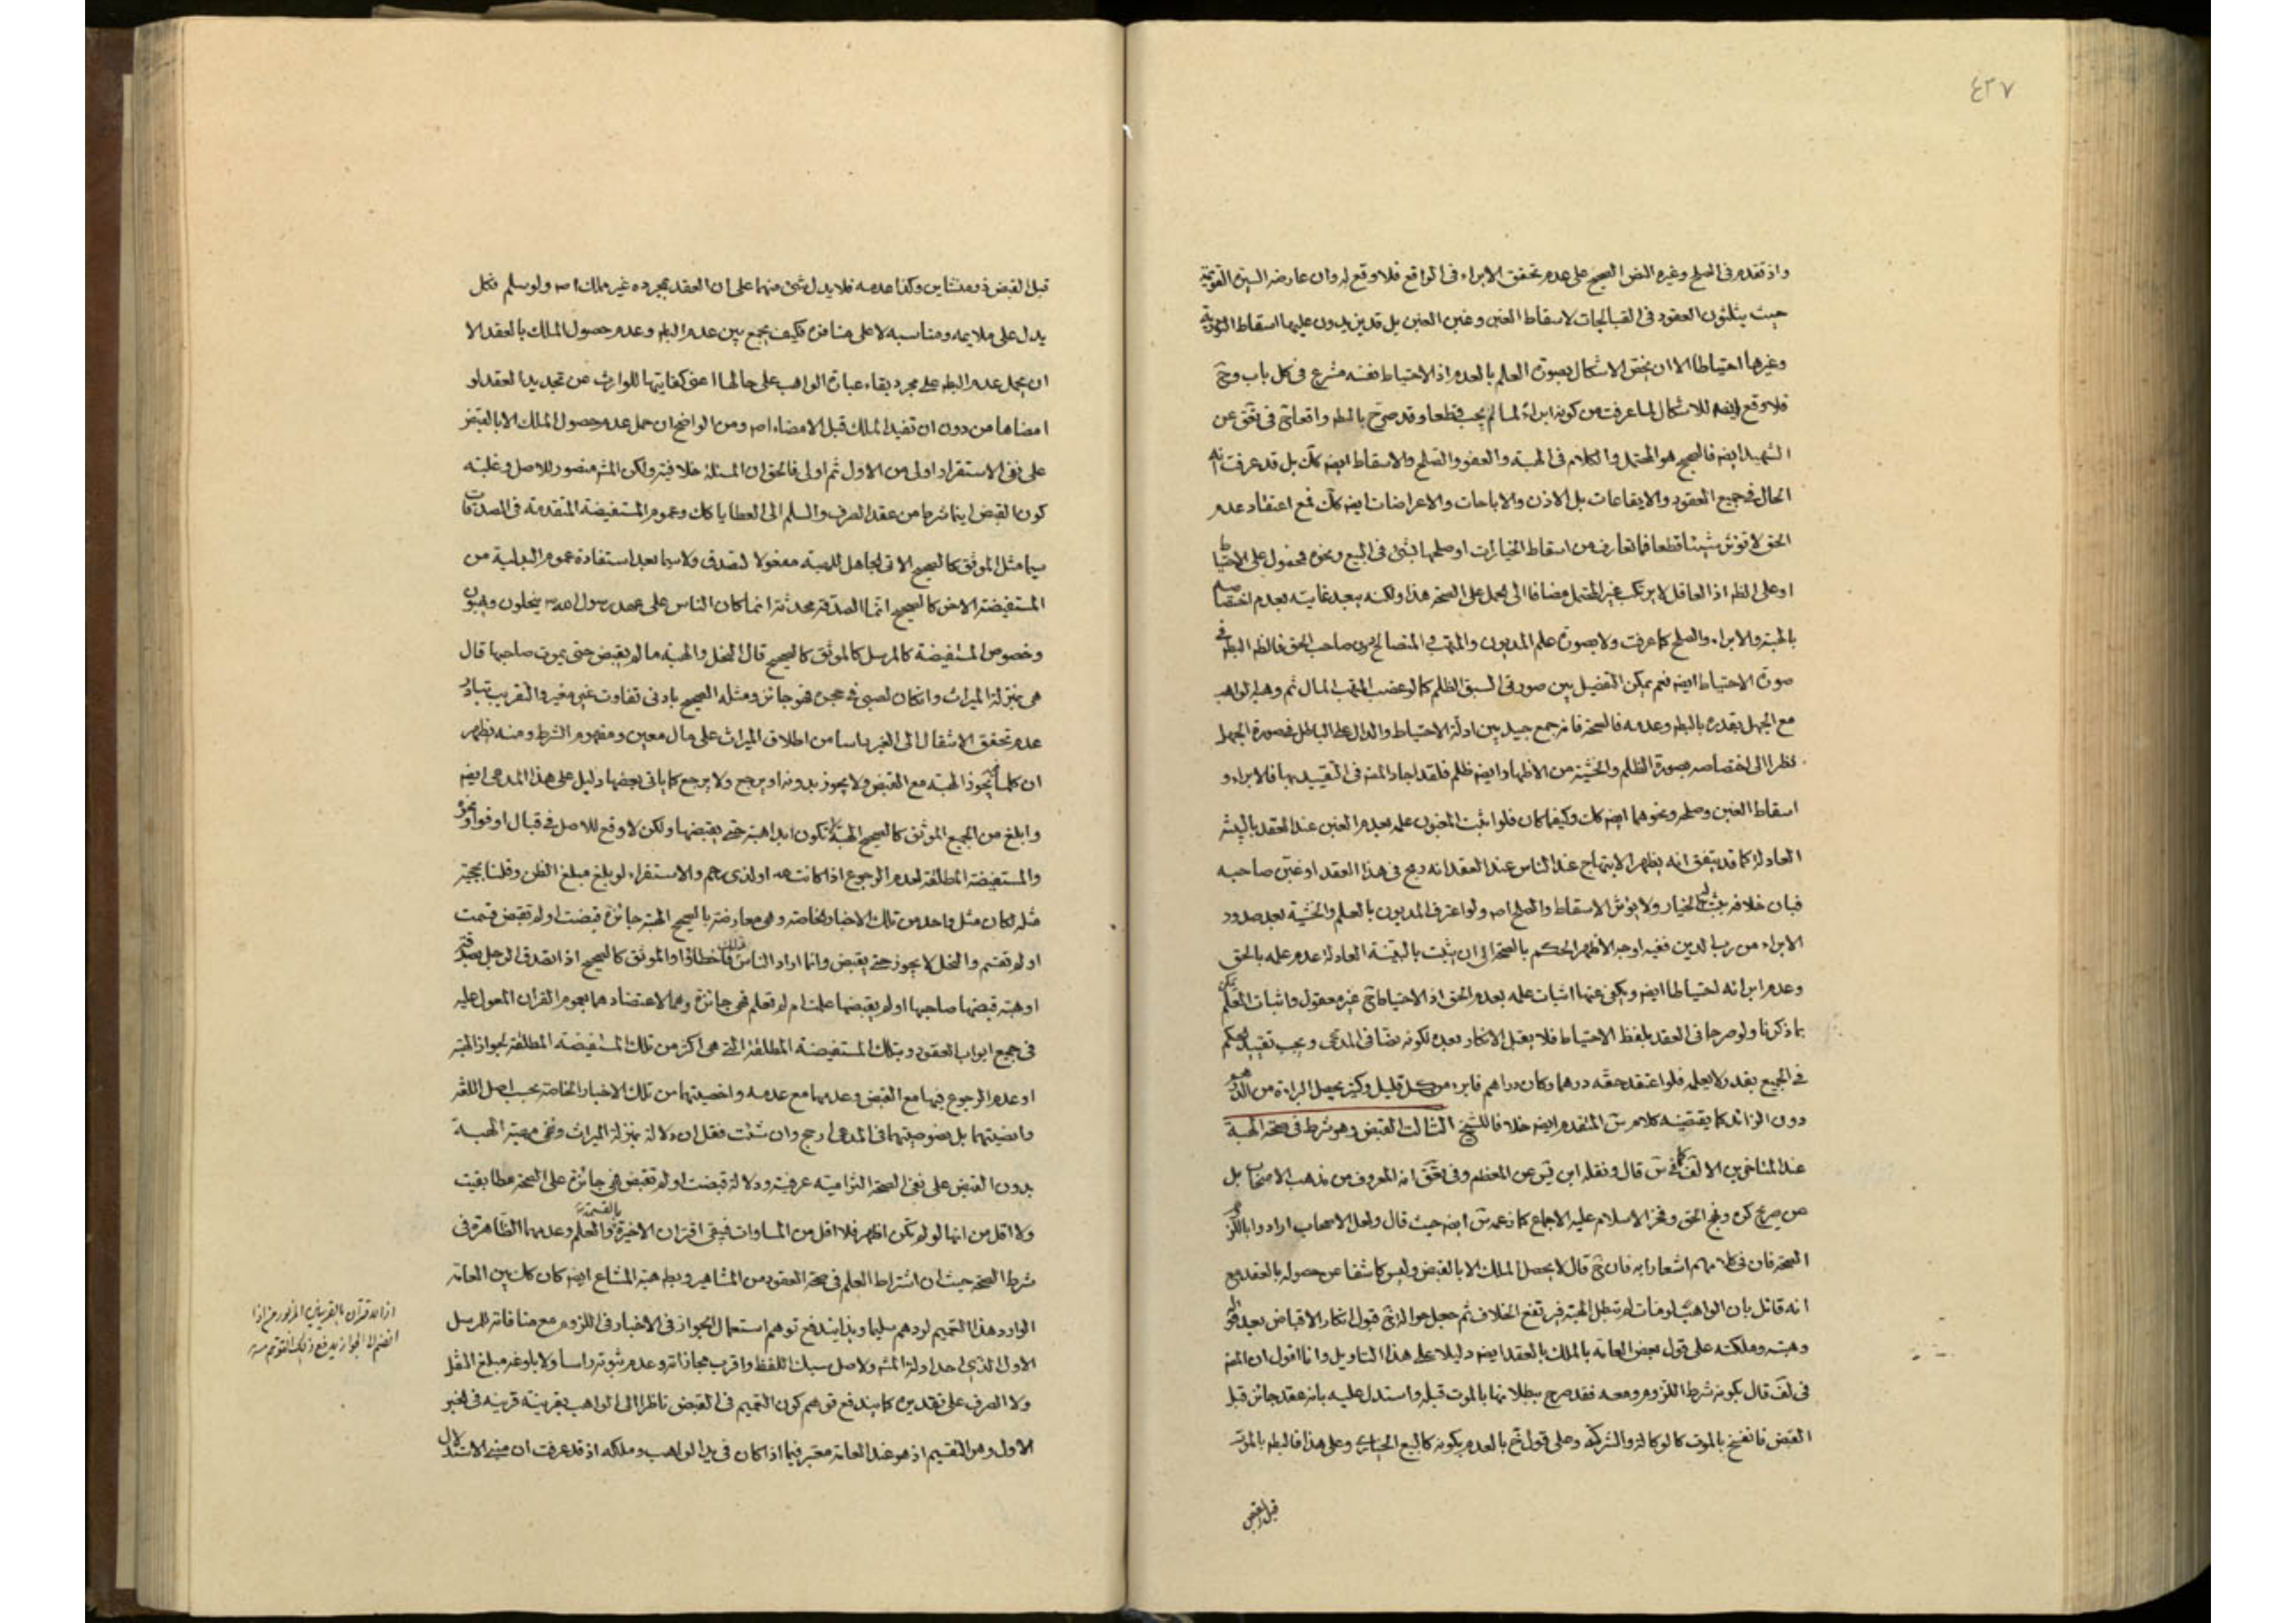 ٤٣٧
واذ تقدم فى الصلح وغيره النص الصحيح على عدم تحقق الابراء فى الواقع فلا وقع له وان عارضه السيرة القويمة
حيث يثلثون العقود فى القبالجات لاسقاط الغبن وغبن الغبن بل قد يزيدون عليها اسقاط
وغيرها احتياطا الا ان يختص الاشكال بصورة العلم بالعدم اذ الاحتياط نفسه مشرع فى كل باب وح
فلا وقع ايضه للاشكال لما عرفت من كونه ابراء لما لم يجب قطعا وقد صرح بالبطه
الشهيد ايضه فالصحيح هو المحتمل والكلام فى الهبة والعفو والصلح والاسقاط ايضه كك بل قد عرفت انه
الحال فى جميع العقود والايقاعات بل الاذن والاباحات والاعراضات ايضه كك فمع اعتقاد عدم
الحق لا تؤثر شيئا قطعا فما تعارف من اسقاط الخيارات او صلحها بشئ فى البيع ونحوه محمول على الاحتياط
او على الظه اذ العاقل لا يرتكب غير المحتمل مضافا الى الحمل على الصحة هذا ولكنه بعيد غايته بعدم اختصاصه
بالهبة والابراء والصلح كما عرفت ولا بصورة علم المديون والمتهب والمتصالح دون صاحب الحق فالظه البطه فى
صورة الاحتياط ايضه نعم يمكن التفصيل بين صورتى السبق الظلم كما لو غصب المتهب المال ثم وهبه الواهب
مع الجهل بقدره بالبطه وعدمه فالصحة فانه جمع جيد بين ادلة الاحتياط والدال على الباطل فى صورة الجهل
نظرا الى اختصاصه بصورة الظلم والخشية من الاظهار وايضه ظلم فلقد اجاد المصه فى التقييد بها فالابراء و
اسقاط الغبن وصلحه ونحوهما ايضه كك وكيفما كان فلو اثبت المغبون علمه بعدم الغبن عند العقد بالبينة
العادلة كما قد يتفق انه يظهر الابتهاج عند الناس عند العقد انه ربح فى هذا العقد او غبن صاحبه
فبان خلافه يثبت له الخيار ولا يؤثر الاسقاط والصلح اصه ولو اعترف المديون بالعلم والخشية بعد صدور
الابراء من رب الدين ففيه اوجه الاظهر الحكم بالصحة الى ان يثبت بالبينة العادلة عدم علمه بالحق
وعدم ابرائه احتياطا ايضه ويكفى عنها اثبات علمه بعدم الحق اذ الاحتياط ح غير معقول واثبات العلم يمكن
بما ذكرنا ولو صرحا فى العقد بلفظ الاحتياط فلا يقبل الانكار بعده لكونه نصا فى المدعى ويجب تقييد الحكم
فى الجميع بقدر لا يعلمه فلو اعتقد حقه درهما وكان دراهم فابرء من كل قليل وكثير يحصل البراءة من الدرهم
دون الزائد كما يقتضيه كلام س المتقدم ايضه خلافا للشيخ الثالث القبض وهو شرط فى صحة الهبة
عند المتاخرين الا لف كما فى س قال ونقله ابن يس عن المعظم وفى تحقق انه المعروف من مذهب الاصحاب بل
عن صريح كره ونهج الحق وفخر الاسلام عليه الاجماع كما زعمه س ايضه حيث قال ولعل الاصحاب ارادوا باللزوم
الصحة فان فى كلامهم اشعارا به فان خ قال لا يحصل الملك الا بالقبض وليس كاشفا عن حصوله بالعقد مع
انه قائل بان الواهب لو مات لم تبطل الهبة فيرتفع الخلاف ثم جعل حوالة خ قبول انكار الاقباض بعد قوله
وهبته وملكته على قول بعض العامة بالملك بالعقد ايضه دليلا على هذا التاويل وانا اقول ان المصه
فى لف قال بكونه شرط اللزوم ومعه فقد صرح ببطلانها بالموت قبله واستدل عليه بانه عقد جائز قبل
القبض فانفسخ بالموت كالوكالة والشركة وعلى قول خ بالعدم بكونه كالبيع الخيارى وعلى هذا فالبطه بالموت
قبل القبض
قبل القبض ذو منشاين وكذا عدمه فلا يدل شئ منهما على ان العقد بمجرده غير مملك اصه ولو سلم فكل
يدل على ملايمه ومناسبه لا على منافره فكيف يجمع بين عدم البطه وعدم حصول الملك بالعقد الا
ان يحمل عدم البطه على مجرد بقاء عبارة الواهب على حالها اعنى كفايتها للوارث عن تجديد العقد او
امضاها من دون ان تفيد الملك قبل الامضاء اصه ومن الواضح ان حمل عدم حصول الملك الا بالقبض
على نفى الاستقرار اولى من الاول ثم اولى فالحق ان المسئلة خلافية ولكن المشه منصور للاصل وغلبة
كون القبض اينما شرط من عقد الصرف والسلم الى العطايا كك وعموم المستفيضة المتقدمة فى الصدقات
سيما مثل الموثق كالصحيح الاتى لجاهل للهبة مفعولا لتصدق ولا سيما بعد استفادة عموم البدلية من
المستفيضة الاخر كالصحيح انما الصدقة محدثة انما كان الناس على عهد رسول الله ص ينحلون ويهبون
وخصوص المستفيضة كالمرسل كالموثق كالصحيح قال النحل والهبة ما لم يقبض حتى يموت صاحبها قال
هى بمنزلة الميراث وان كان لصبى فى حجره فهو جائز ومثله الصحيح بادنى تفاوت غير مغير والتقريب تبادر
عدم تحقق الانتقال الى الغير راسا من اطلاق الميراث على مال معين ومفهوم الشرط ومنه يظهر
ان كلما يجوز الهبة مع القبض ولا يجوز بدونه او يرجع ولا يرجع كما ياتى بعضها دليل على هذا المدعى ايضه
وابلغ من الجميع الموثق كالصحيح الهبة لا تكون ابدا هبة حتى يقبضها ولكن لا وقع للاصل فى قبال اوفوا ونحوه
والمستفيضة المطلقة لعدم الرجوع اذا كانت لله او لذى رحم والاستقراء لو بلغ مبلغ الظن وقلنا بحجية
مثله لكان مثل واحد من تلك الاخبار الخاصة وهى معارضة بالصحيح الهبة جائزة قبضت او لم تقبض قسمت
او لم تقسم والنحل لا يجوز حتى يقبض وانما اراد الناس ذلك فاخطاؤا والموثق كالصحيح اذا تصدق الرجل بصدقة
او هبة قبضها صاحبها او لم يقبضها علمت ام لم تعلم فهى جائزة وهما لاعتضادهما بعموم القران المعول عليه
فى جميع ابواب العقود وبتلك المستفيضة المطلقة التى هى اكثر من تلك المستفيضة المطلقة لجواز الهبة
او عدم الرجوع فيها مع القبض وعدمها مع عدمه واخصيتهما من تلك الاخبار الخاصة بحسب اصل اللغة
وانصيتهما بل نصوصيتهما فى المدعى ارجح وان شئت فقل ان دلالة بمنزلة الميراث ونفى صحة الهبة
بدون القبض على نفى الصحة التزامية عرفية ودلالة قبضت او لم تقبض فهى جائزة على الصحة مطابقية
ولا اقل من انها لو لم تكن اظهر فلا اقل من المساوات فيبقى اقتران الاخيرة بالقسمة والعلم وعدمهما الظاهرة فى
شرط الصحة حيث ان اشتراط العلم فى صحة العقود من المشاهير وبطه هبة المشاع ايضه كان كك بين العامة
الوارد هذا التعميم لردهم سليما وبذا يندفع توهم استعمال الجواز فى الاخبار فى اللزوم مع منافاته للمرسل
الاول الذى احد ادلة المشه ولاصل سبك اللفظ واقرب مجازاته وعدم ثبوته راسا ولا بلوغه مبلغ النقل
ولا الصرف على تقديره كما يندفع توهم كون التعميم فى القبض ناظرا الى الواهب بقرينة قرينه فى الخبر
الاول وهو التقسيم اذ هو عند العامة معتبر فيما اذا كان فى يد الواهب وملكه اذ قد عرفت ان مبنى الاستدلال
اذ الاقتران بالقرينتين المزبورتين اذا
انضم الى الجواز يدفع ذلك التوهم منه